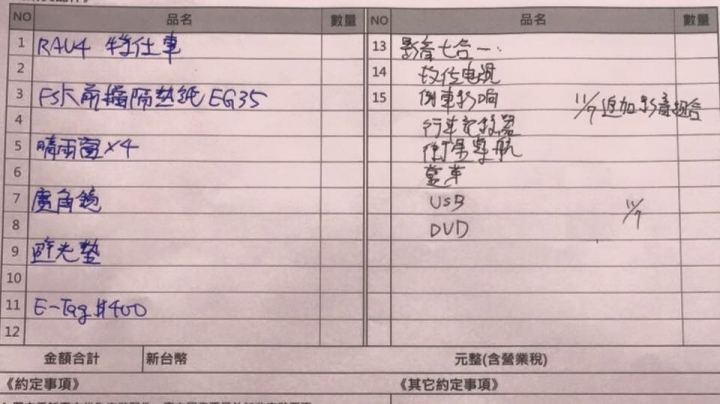 NO 品名 數量 NO 品名 數量
1 RAV4 特仕車 13 影音七合一.
2 14 數位電視
3 FSK前擋隔熱紙 EG35 15 倒車影响 11/7 追加影音組合
4 行車記錄器
5 晴雨窗×4 衛星導航
6 藍芽
7 廣角鏡 USB 11/7
8 DVD
9 避光墊
10
11 E-Tag $400
12
金額合計 新台幣 元整(含營業稅)
《約定事項》 《其它約定事項》